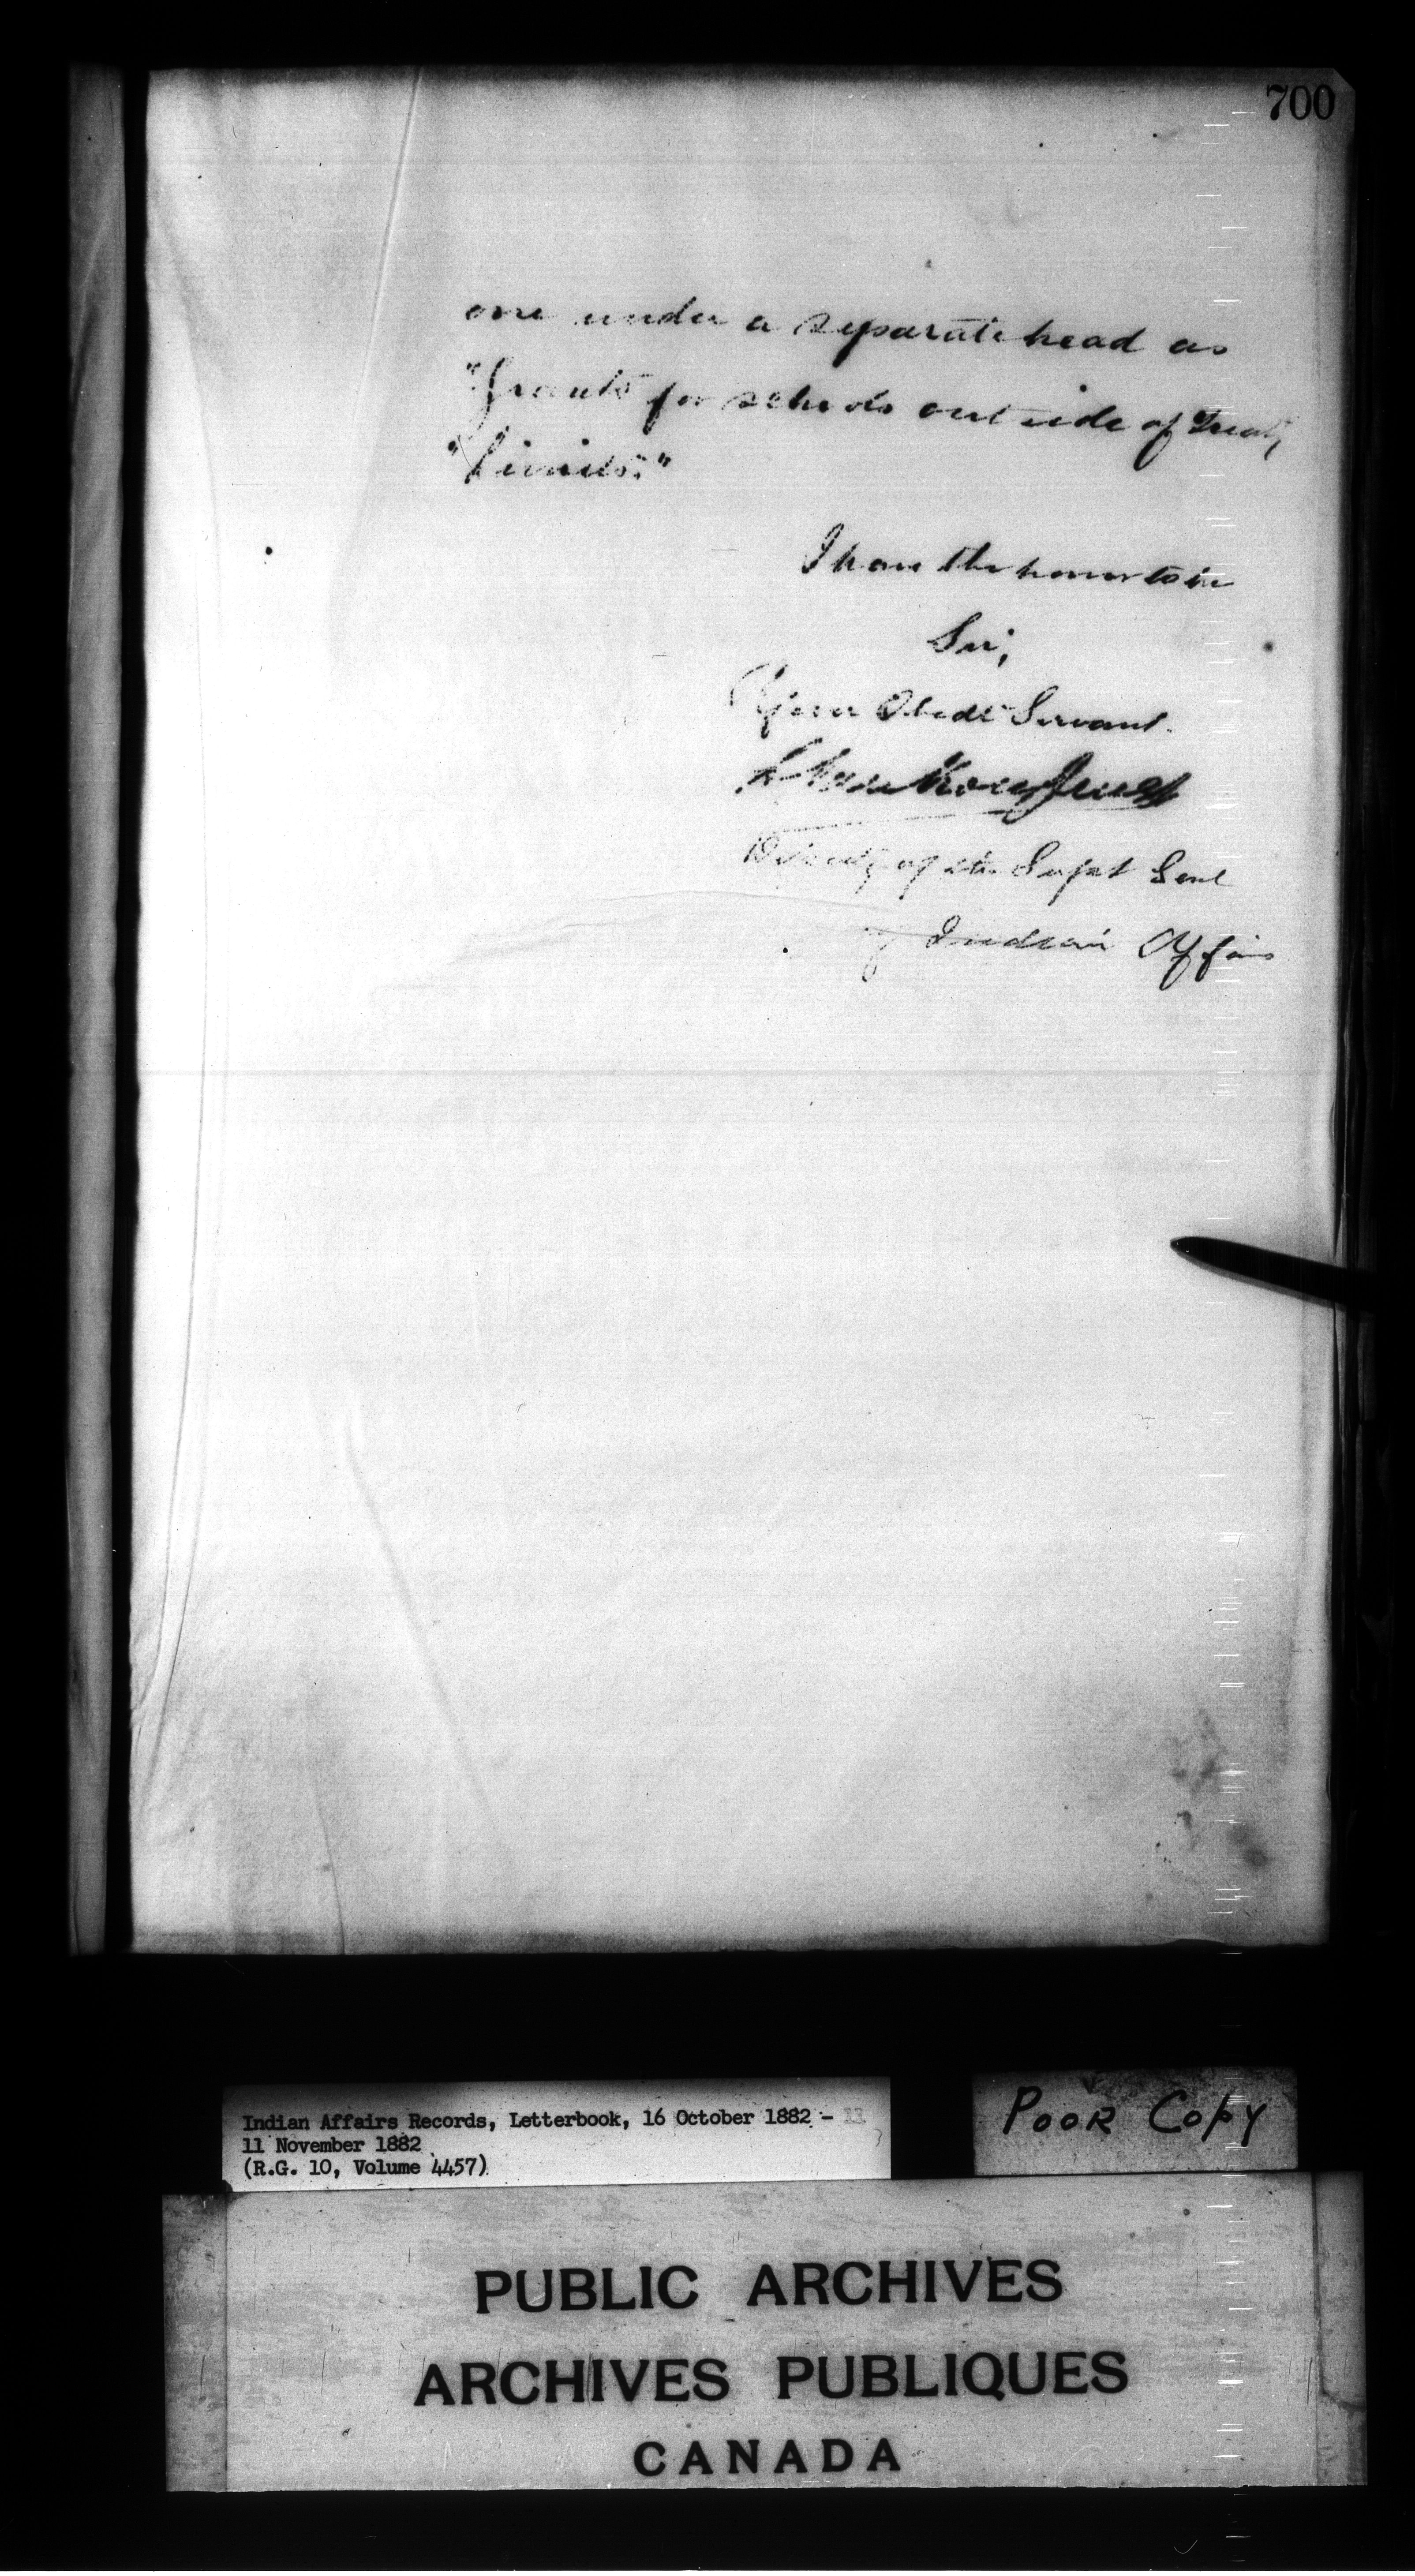 700
one under a separate head as
"Grants for schools outside of Treaty
"Limits."
I have the honor to be
Sir,
Your Obedt Servant.
L. VanKoughnet
Deputy of the Supt Genl
of Indian Affairs
Indian Affairs Records, Letterbook, 16 October 1882 - 11
11 November 1882
(R.G. 10, Volume 4457)
POOR COPY
PUBLIC ARCHIVES
ARCHIVES PUBLIQUES
CANADA